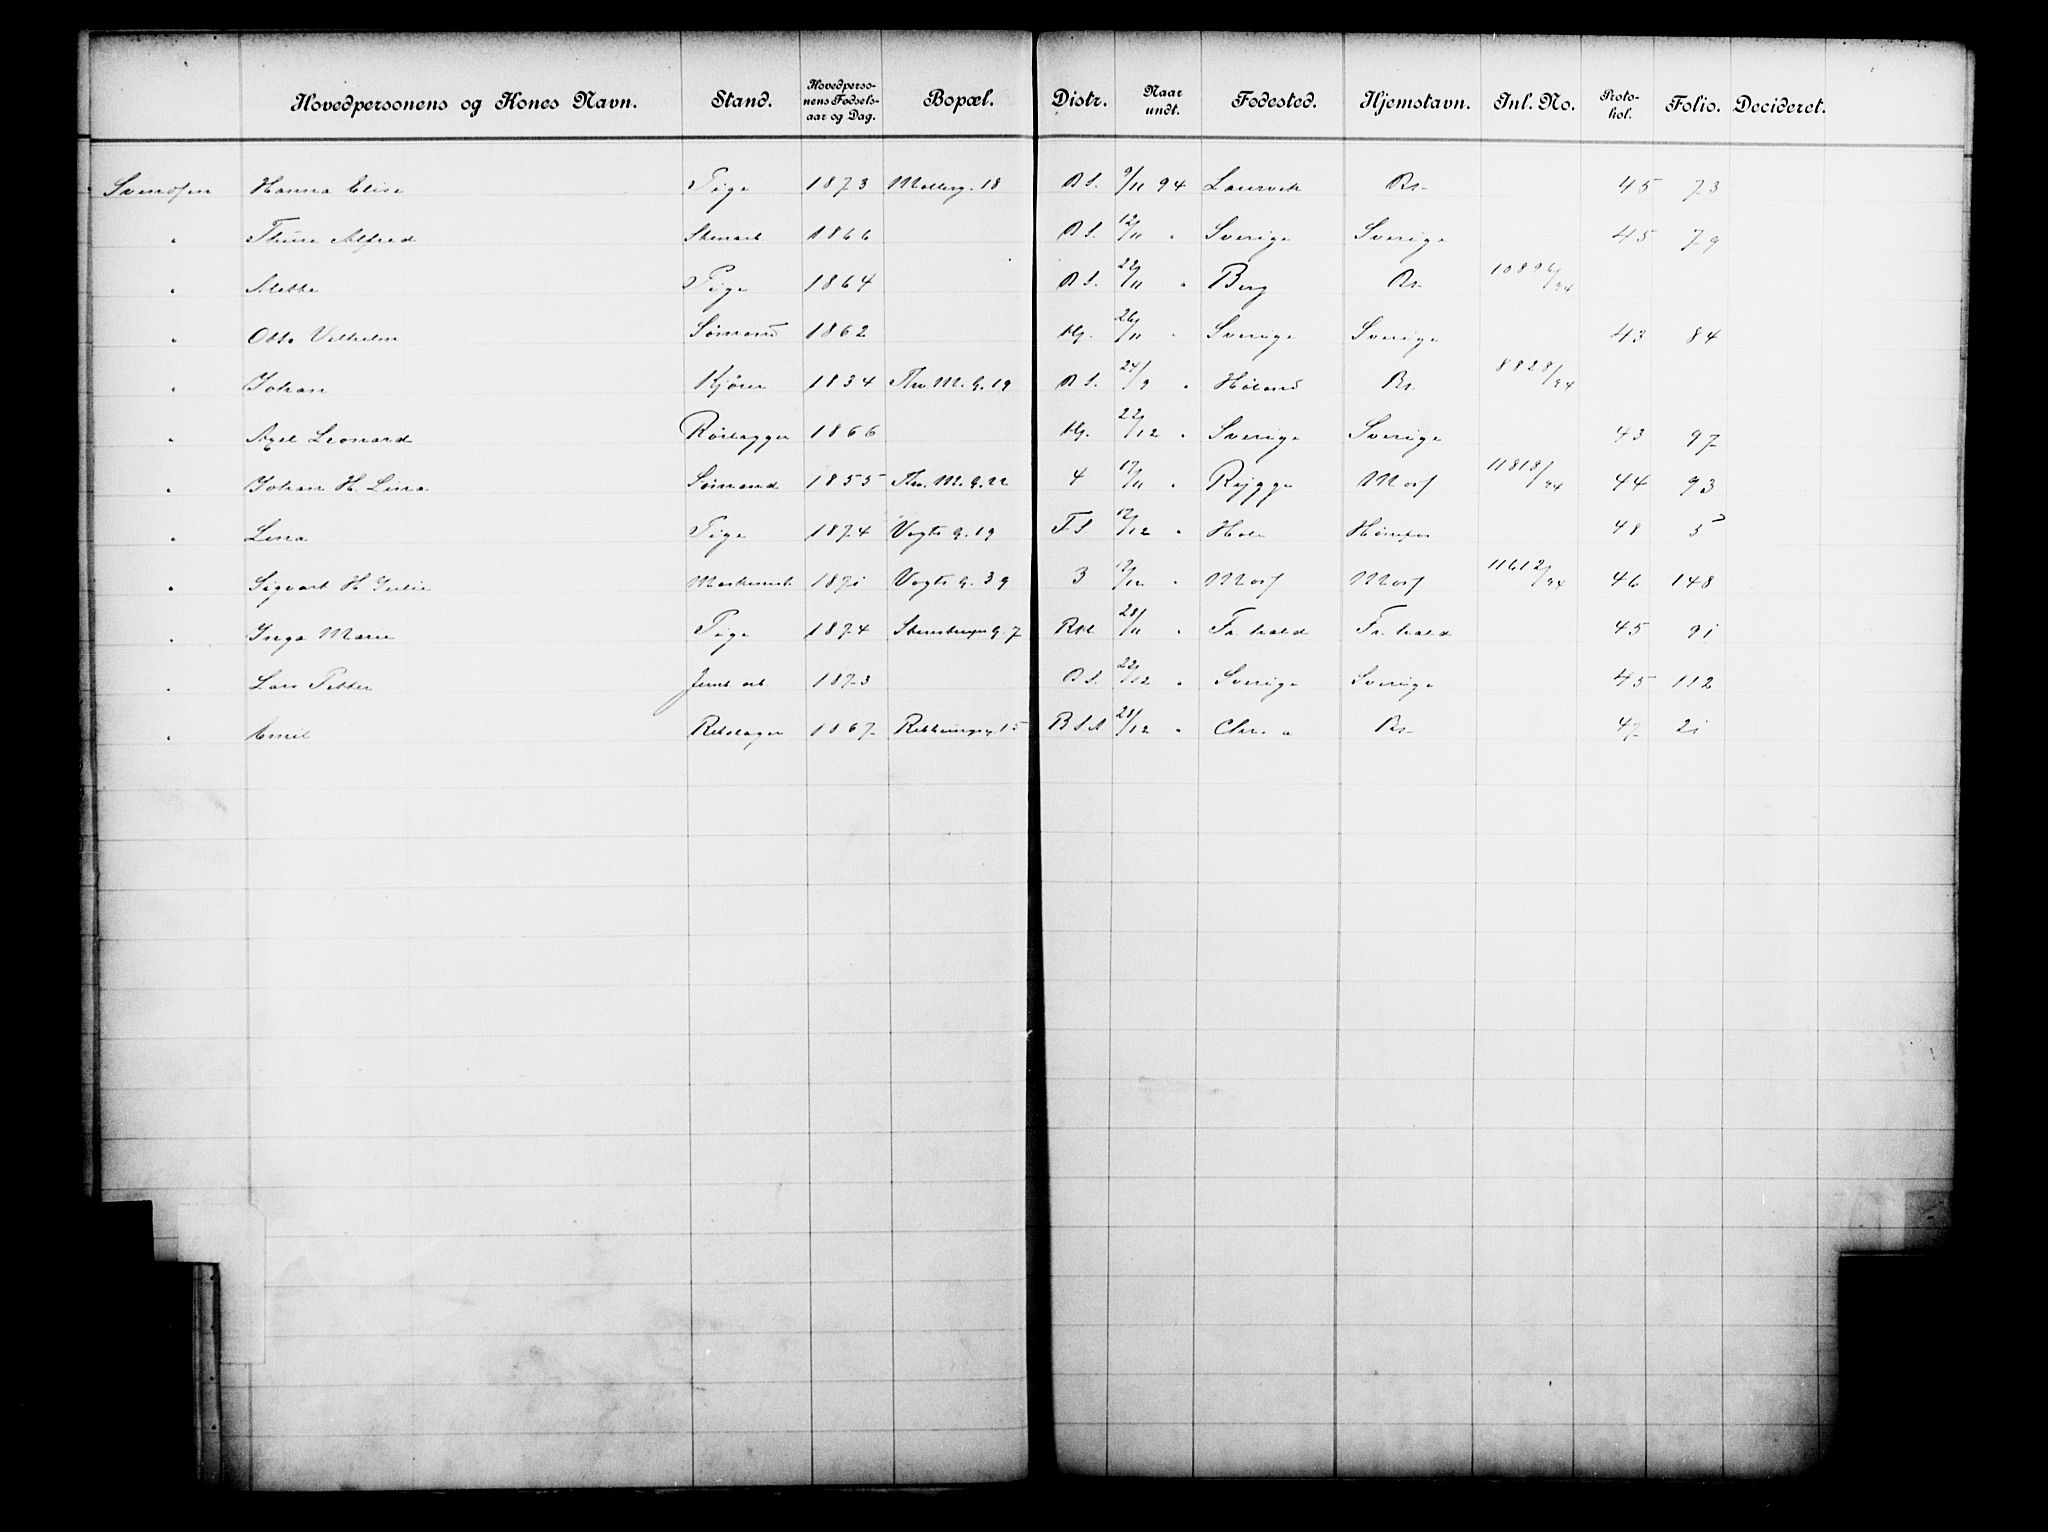 Hovedpersonens og Kones Navn. Stand. Hovedpersonens Fødselsaar og Dag. Bopæl. Distr. Naar undt. Fødested. Hjemstavn. Inl. No. Protokol. Folio. Decideret.
Svendsen Hanna Elise Pige 1873 Møllerg. 18 B S. 9/11 94 Laurvik Kr. 45 73
" Thure Alfred Stenarb 1866 B S. 12/11 " Sverige Sverige 45 79
" Alette Pige 1864 B S. 22/11 " Berg Kr. 10896/94
" Otto Vilhelm Sømand 1862 Hj. 26/11 " Sverige Sverige 43 84
" Johan Kjører 1834 Thv. M. G. 19 B S. 24/9 " Høland Kr. 8828/94
" Axel Leonard Rørlægger 1866 Hj. 22/12 " Sverige Sverige 43 97
" Johan H. Lina Sømand 1855 Thv. M. G. 22 4 17/11 " Rygge Moss 11818/94 44 93
" Lina Pige 1874 Vogts G. 19 F S 12/12 " Hole Hønefos 48 5
" Sigvart H. Julie Maskinist 1871 Vogts G. 39 3 7/12 " Moss Moss 11612/94 46 148
" Inga Marie Pige 1874 Stenstrups G. 7 28/11 " Fr. hald Fr. hald 45 91
" Lars Petter Jernb. arb. 1873 B S. 22/12 " Sverige Sverige 45 112
" Emil Rebslager 1867 15 28/12 " Chr. a Kr. 47 21